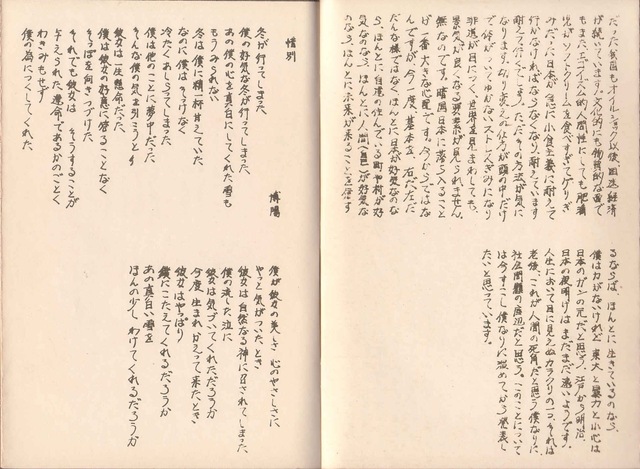 だった。自由もオイルショック以後、困迷経済
が続いています。文化的にも物質的な面で
もまた、エゴイズム的人間性にしても、肥満
児がソフトクリームを食べすぎてゲリぎ
みだった日本が急に小食主義に耐えて
行かなければならなくなり耐えています。
耐えつづけてします。ただその方法が気に
なります。切り変えの仕方が頭の中だけ
で体がいじゅかないストレスぎみになり
非道が目につく。世界を見まわしても、
景気が良くなる要素が見られません。
無なのです。暗闇日本に落ち入ること
が一番大きな心配です。今からではな
んですが、今一度、基本を、石べえだ
だんな様ではなく、ほんとに日本が好気なのな
ら、ほんとに自達の住んでいる町や村が好
気なのなら、ほんとに人間(異色)が好気な
のなら、ほんとに未来が来ることを信ず
るならば、ほんとに生きているのなら、
僕は力がないけれど、東大と暴力と小心は
日本のガンの元だと思う。江戸から明治、
日本の夜明けはまだまだ遠いようです。
人生において目に見えぬカラクリの一つ、それは
老後、これが人間の死角だと思う僕なりに、
社会問題の底辺だと思う。このことについて
は今すこし、僕なりに温めてから発表し
たいと思っています。
惜別
博陽
冬が行ってしまった
僕の好気な冬が行ってしまった
あの僕の心を真白にしてくれた雪も
もうみられない
冬は僕に精一杯甘えていた
なのに僕はそっけなく
冷たくあしらってしまった
僕は他のことに夢中だった
そんな僕の気を引こうと
彼女は一生懸命だった
僕は彼女の好意に答えることなく
そっぽを向きつづけた
それでも彼女は そうすることが
与えられた運命であるかのごとく
わきみもせず
僕の為につくしてくれた
僕が彼女の美しさ 心のやさしさに
やっと気がついた、とき
彼女は自然なる神に召されてしまった
僕の流した泣に
彼女は気づいてくれただろうか
今度生まれかえって来たとき
彼女はやっぱり
僕にこたえてくれるだろうか
あの真白い雪を
ほんの少し、わけてくれるだろうか